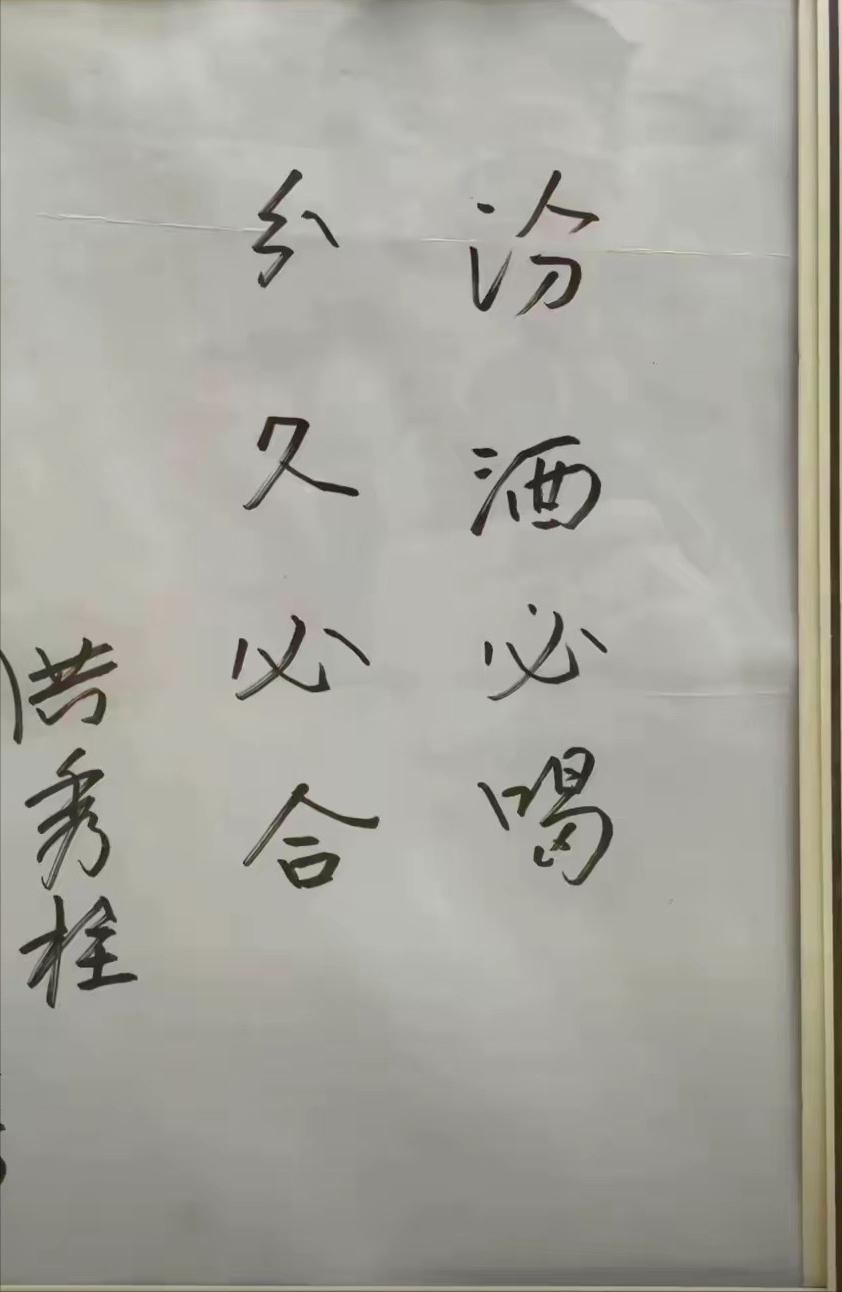 汾酒必喝
分久必合
洪秀栓